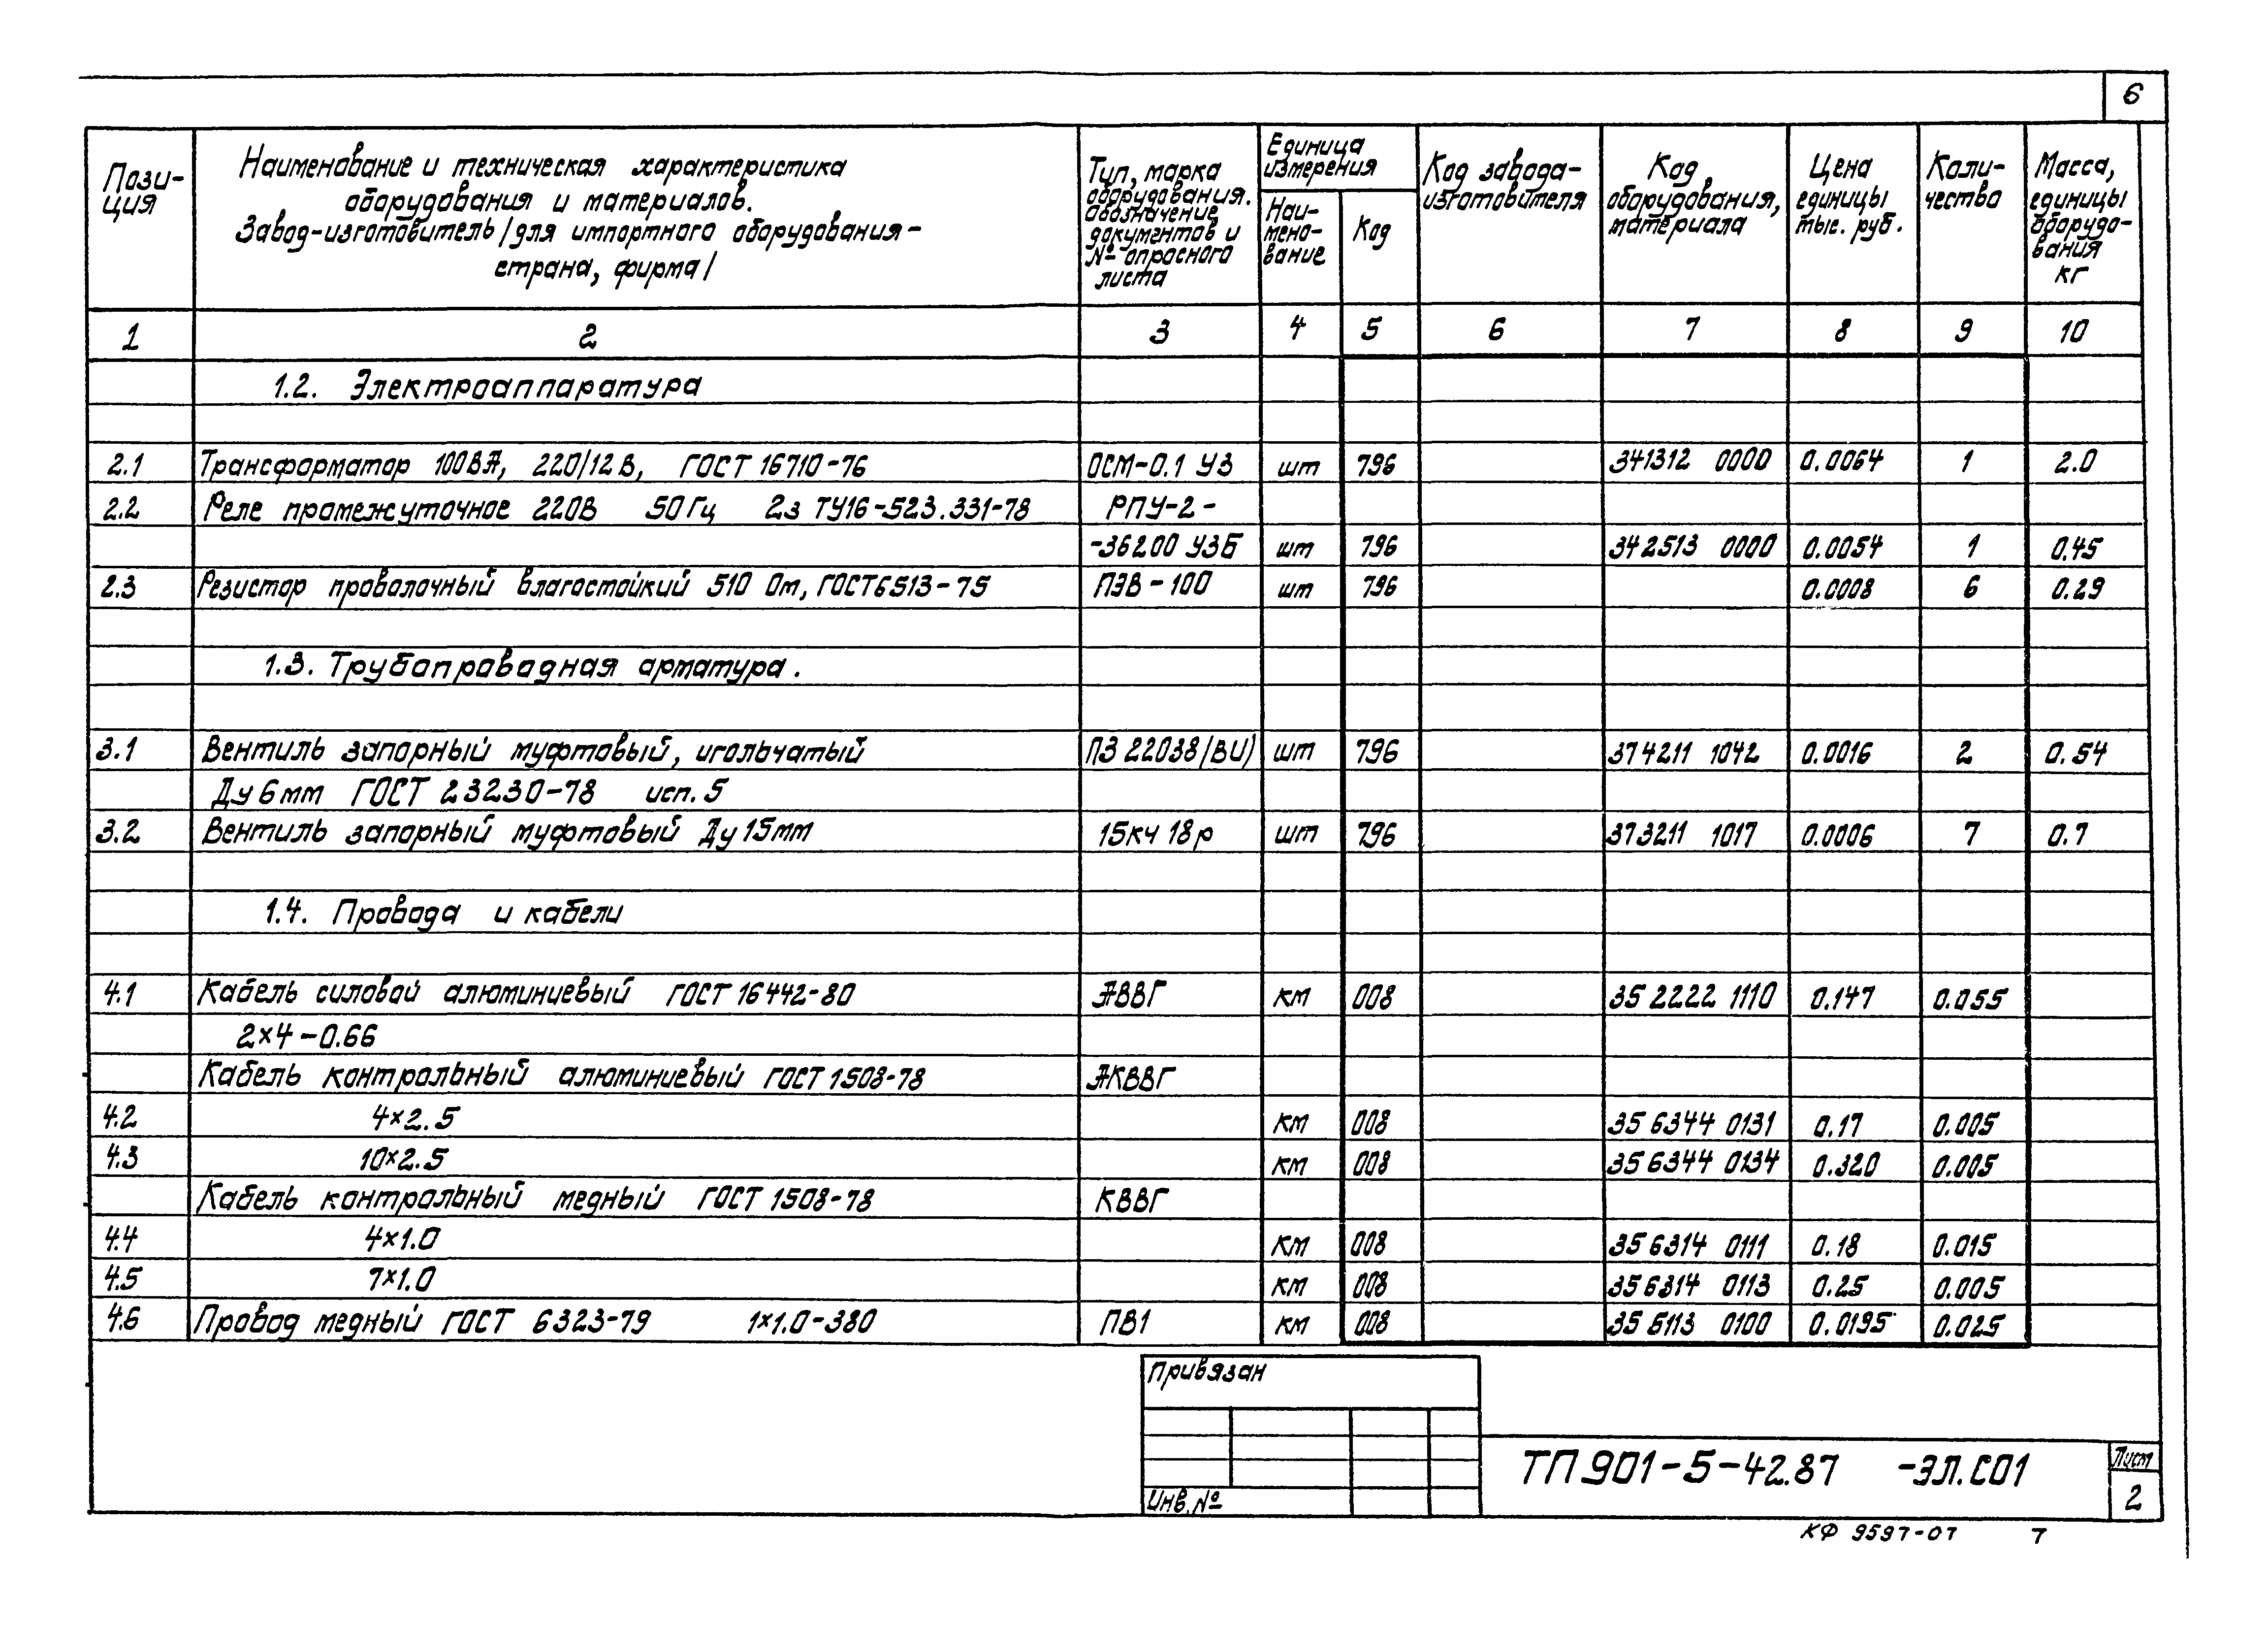 6
Пози-
ция
Наименование и техническая характеристика
оборудования и материалов.
Завод-изготовитель /для импортного оборудования-
страна, фирма/
Тип, марка
оборудования.
обозначение
документов и
№ опросного
листа
Единица
измерения
Наи-
мено-
вание
Код
Код завода-
изготовителя
Код
оборудования,
материала
Цена
единицы
тыс. руб.
Коли-
чество
Масса,
единицы
оборудо-
вания
кг
1 2 3 4 5 6 7 8 9 10
1.2. Электроаппаратура
2.1 Трансформатор 100ВА, 220/12В, ГОСТ 16710-76 ОСМ-0.1 У3 шт 796 341312 0000 0.0064 1 2.0
2.2 Реле промежуточное 220В 50Гц 2з ТУ16-523.331-78 РПУ-2-
-36200 У3Б шт 796 342513 0000 0.0054 1 0.45
2.3 Резистор проволочный влагостойкий 510 Ом, ГОСТ6513-75 ПЭВ-100 шт 796 0.0008 6 0.29
1.3. Трубопроводная арматура.
3.1 Вентиль запорный муфтовый, игольчатый ПЗ 22038/ВИ) шт 796 374211 1042 0.0016 2 0.54
Ду 6мм ГОСТ 23230-78 исп. 5
3.2 Вентиль запорный муфтовый Ду 15мм 15кч 18р шт 796 373211 1017 0.0006 7 0.7
1.4. Провода и кабели
4.1 Кабель силовой алюминиевый ГОСТ 16442-80 АВВГ км 008 35 2222 1110 0.147 0.055
2×4-0.66
Кабель контрольный алюминиевый ГОСТ 1508-78 АКВВГ
4.2 4×2.5 км 008 35 6344 0131 0.17 0.005
4.3 10×2.5 км 008 35 6344 0134 0.320 0.005
Кабель контрольный медный ГОСТ 1508-78 КВВГ
4.4 4×1.0 км 008 35 6314 0111 0.18 0.015
4.5 7×1.0 км 008 35 6314 0113 0.25 0.005
4.6 Провод медный ГОСТ 6323-79 1×1.0-380 ПВ1 км 008 35 5113 0100 0.0195 0.025
Привязан
Инв. №
ТП 901-5-42.87 -ЭЛ.СО1
Лист
2
КФ 9597-07 7